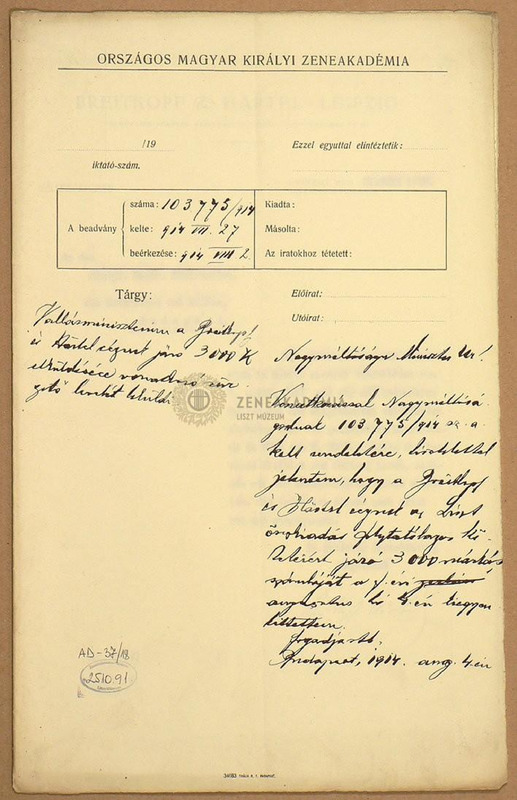 ORSZÁGOS MAGYAR KIRÁLYI ZENEAKADÉMIA
/19
iktató-szám.
Ezzel egyuttal elintéztetik:
A beadvány
száma: 103775/914
kelte: 914 VII. 27
beérkezése: 914 VIII 2.
Kiadta:
Másolta:
Az iratokhoz tétetett:
Tárgy:
Előirat:
Utóirat:
Vallásminisztérium a Breitkopf
és Härtel cégnek járó 3000 K
elküldésére vonatkozó
leveleit
Nagyméltóságu Miniszter Úr!
Vonatkozással Nagyméltósá
godnak 103775/914 sz. a.
kelt rendeletére, tisztelettel
jelentem, hogy a Breitkopf
és Härtel cégnek a Liszt
összkiadás folytatólagos kö
teteiért járó 3000 márkás
a f. évi
augusztus hó 4.-én
Budapest, 1914. aug. 4.-én
ZENEAKADÉMIA
LISZT MÚZEUM
AD-37/18
2510.91